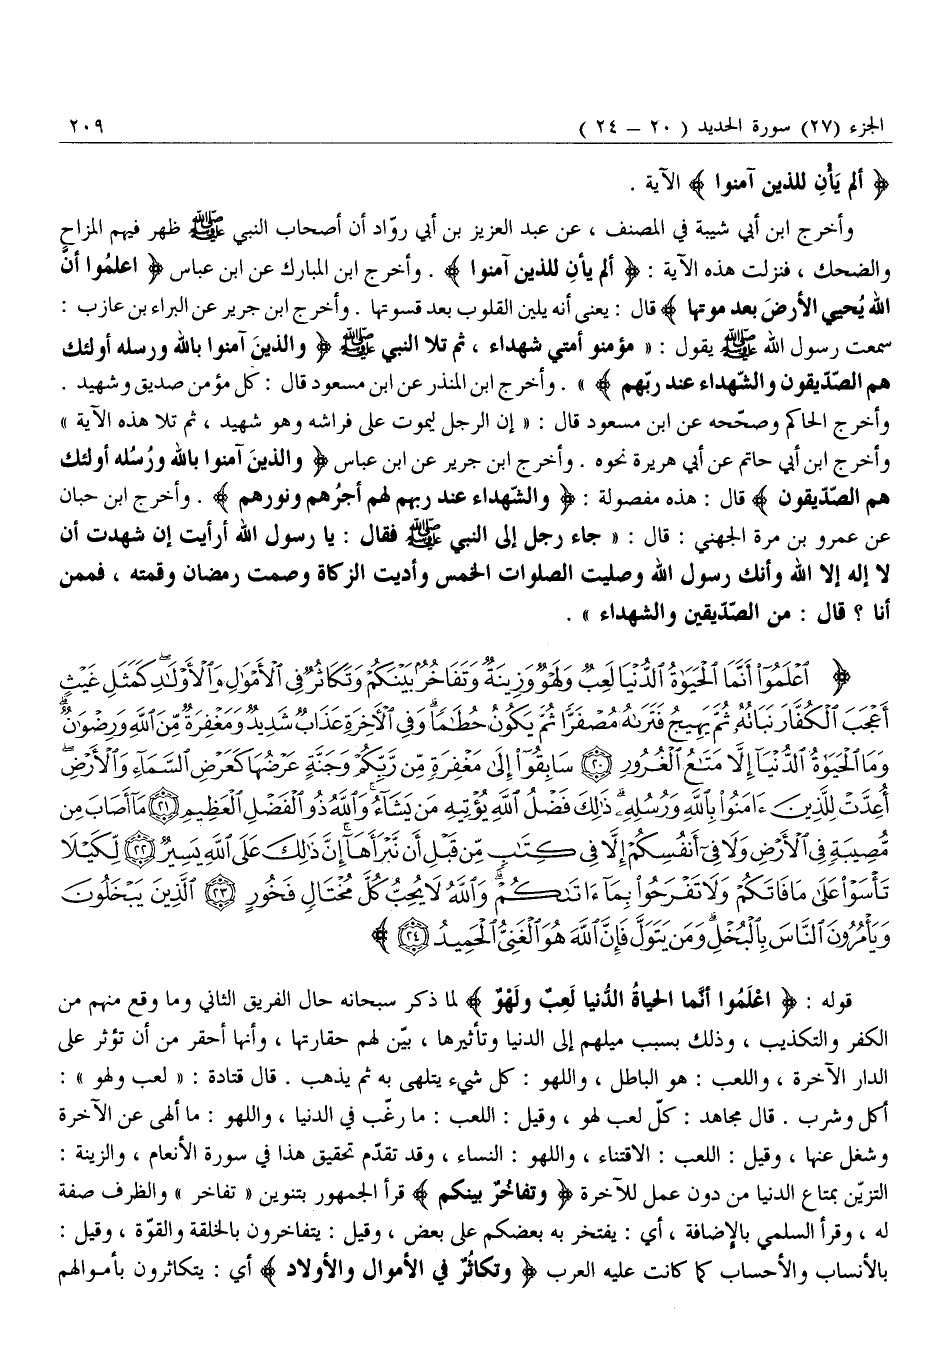 الجزء (٢٧) سورة الحديد ( ٢٠ – ٢٤ ) ٢٠٩
﴿ ألم يَأْنِ للذين آمنوا ﴾ الآية .
وأخرج ابن أبي شيبة في المصنف ، عن عبد العزيز بن أبي روّاد أن أصحاب النبي ﷺ ظهر فيهم المزاح
والضحك ، فنزلت هذه الآية : ﴿ ألم يأنِ للذين آمنوا ﴾ . وأخرج ابن المبارك عن ابن عباس ﴿ اعلمُوا أنَّ
الله يُحيي الأرضَ بعد موتها ﴾ قال : يعني أنه يلين القلوب بعد قسوتها . وأخرج ابن جرير عن البراء بن عازب :
سمعت رسول الله ﷺ يقول : « مؤمنو أمتي شهداء ، ثم تلا النبي ﷺ ﴿ والذينَ آمنوا بالله ورسله أولئك
هم الصّدّيقون والشّهداء عند ربّهم ﴾ » . وأخرج ابن المنذر عن ابن مسعود قال : كلّ مؤمن صديق وشهيد .
وأخرج الحاكم وصحّحه عن ابن مسعود قال : « إن الرجل ليموت على فراشه وهو شهيد ، ثم تلا هذه الآية »
وأخرج ابن أبي حاتم عن أبي هريرة نحوه . وأخرج ابن جرير عن ابن عباس ﴿ والذينَ آمنوا بالله ورُسُله أولئك
هم الصّدّيقون ﴾ قال : هذه مفصولة : ﴿ والشّهداء عند ربهم لهم أجرُهم ونورهم ﴾ . وأخرج ابن حبان
عن عمرو بن مرة الجهني : قال : « جاء رجل إلى النبي ﷺ فقال : يا رسول الله أرأيت إن شهدت أن
لا إله إلا الله وأنك رسول الله وصليت الصلوات الخمس وأديت الزكاة وصمت رمضان وقمته ، فممن
أنا ؟ قال : من الصّدّيقين والشهداء » .
﴿ ٱعۡلَمُوٓاْ أَنَّمَا ٱلۡحَيَوٰةُ ٱلدُّنۡيَا لَعِبٞ وَلَهۡوٞ وَزِينَةٞ وَتَفَاخُرُۢ بَيۡنَكُمۡ وَتَكَاثُرٞ فِي ٱلۡأَمۡوَٰلِ وَٱلۡأَوۡلَٰدِۖ كَمَثَلِ غَيۡثٍ
أَعۡجَبَ ٱلۡكُفَّارَ نَبَاتُهُۥ ثُمَّ يَهِيجُ فَتَرَىٰهُ مُصۡفَرّٗا ثُمَّ يَكُونُ حُطَٰمٗاۖ وَفِي ٱلۡأٓخِرَةِ عَذَابٞ شَدِيدٞ وَمَغۡفِرَةٞ مِّنَ ٱللَّهِ وَرِضۡوَٰنٞۚ
وَمَا ٱلۡحَيَوٰةُ ٱلدُّنۡيَآ إِلَّا مَتَٰعُ ٱلۡغُرُورِ ٢٠ سَابِقُوٓاْ إِلَىٰ مَغۡفِرَةٖ مِّن رَّبِّكُمۡ وَجَنَّةٍ عَرۡضُهَا كَعَرۡضِ ٱلسَّمَآءِ وَٱلۡأَرۡضِ
أُعِدَّتۡ لِلَّذِينَ ءَامَنُواْ بِٱللَّهِ وَرُسُلِهِۦۚ ذَٰلِكَ فَضۡلُ ٱللَّهِ يُؤۡتِيهِ مَن يَشَآءُۚ وَٱللَّهُ ذُو ٱلۡفَضۡلِ ٱلۡعَظِيمِ ٢١ مَآ أَصَابَ مِن
مُّصِيبَةٖ فِي ٱلۡأَرۡضِ وَلَا فِيٓ أَنفُسِكُمۡ إِلَّا فِي كِتَٰبٖ مِّن قَبۡلِ أَن نَّبۡرَأَهَآۚ إِنَّ ذَٰلِكَ عَلَى ٱللَّهِ يَسِيرٞ ٢٢ لِّكَيۡلَا
تَأۡسَوۡاْ عَلَىٰ مَا فَاتَكُمۡ وَلَا تَفۡرَحُواْ بِمَآ ءَاتَىٰكُمۡۗ وَٱللَّهُ لَا يُحِبُّ كُلَّ مُخۡتَالٖ فَخُورٍ ٢٣ ٱلَّذِينَ يَبۡخَلُونَ
وَيَأۡمُرُونَ ٱلنَّاسَ بِٱلۡبُخۡلِۗ وَمَن يَتَوَلَّ فَإِنَّ ٱللَّهَ هُوَ ٱلۡغَنِيُّ ٱلۡحَمِيدُ ٢٤ ﴾
قوله : ﴿ اعْلَمُوا أنّما الحياةُ الدُّنيا لَعِبٌ ولَهْوٌ ﴾ لما ذكر سبحانه حال الفريق الثاني وما وقع منهم من
الكفر والتكذيب ، وذلك بسبب ميلهم إلى الدنيا وتأثيرها ، بيّن لهم حقارتها ، وأنها أحقر من أن تؤثر على
الدار الآخرة ، واللعب : هو الباطل ، واللهو : كل شيء يتلهى به ثم يذهب . قال قتادة : « لعب ولهو » :
أكل وشرب . قال مجاهد : كلّ لعب لهو ، وقيل : اللعب : ما رغّب في الدنيا ، واللهو : ما ألهى عن الآخرة
وشغل عنها ، وقيل : اللعب : الاقتناء ، واللهو : النساء ، وقد تقدّم تحقيق هذا في سورة الأنعام ، والزينة :
التزيّن بمتاع الدنيا من دون عمل للآخرة ﴿ وتفاخُرٌ بينكم ﴾ قرأ الجمهور بتنوين « تفاخر » والظرف صفة
له ، وقرأ السلمي بالإضافة ، أي : يفتخر به بعضكم على بعض ، وقيل : يتفاخرون بالخلقة والقوّة ، وقيل :
بالأنساب والأحساب كما كانت عليه العرب ﴿ وتكاثُرٌ في الأموال والأولاد ﴾ أي : يتكاثرون بأموالهم